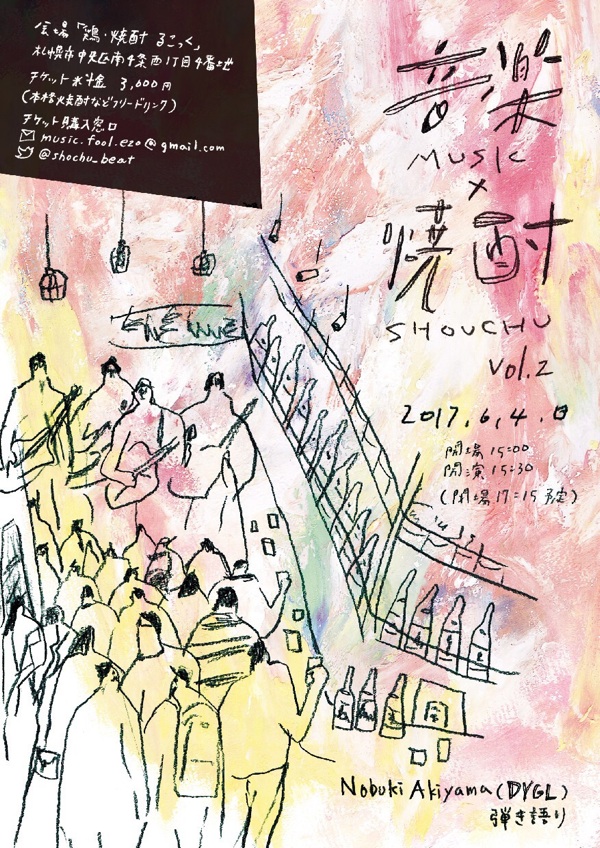 会場「鶏・焼酎 るごっく」
札幌市中央区南4条西1丁目4番地
チケット料金 3,600円
(本格焼酎などフリードリンク)
チケット購入窓口
music.fool.ezo@gmail.com
@shochu_beat
音楽
MUSIC
×
焼酎
SHOUCHU
Vol.2
2017.6.4.日
開場 15:00
開演 15:30
(閉場 17:15 予定)
Nobuki Akiyama (DYGL)
弾き語り